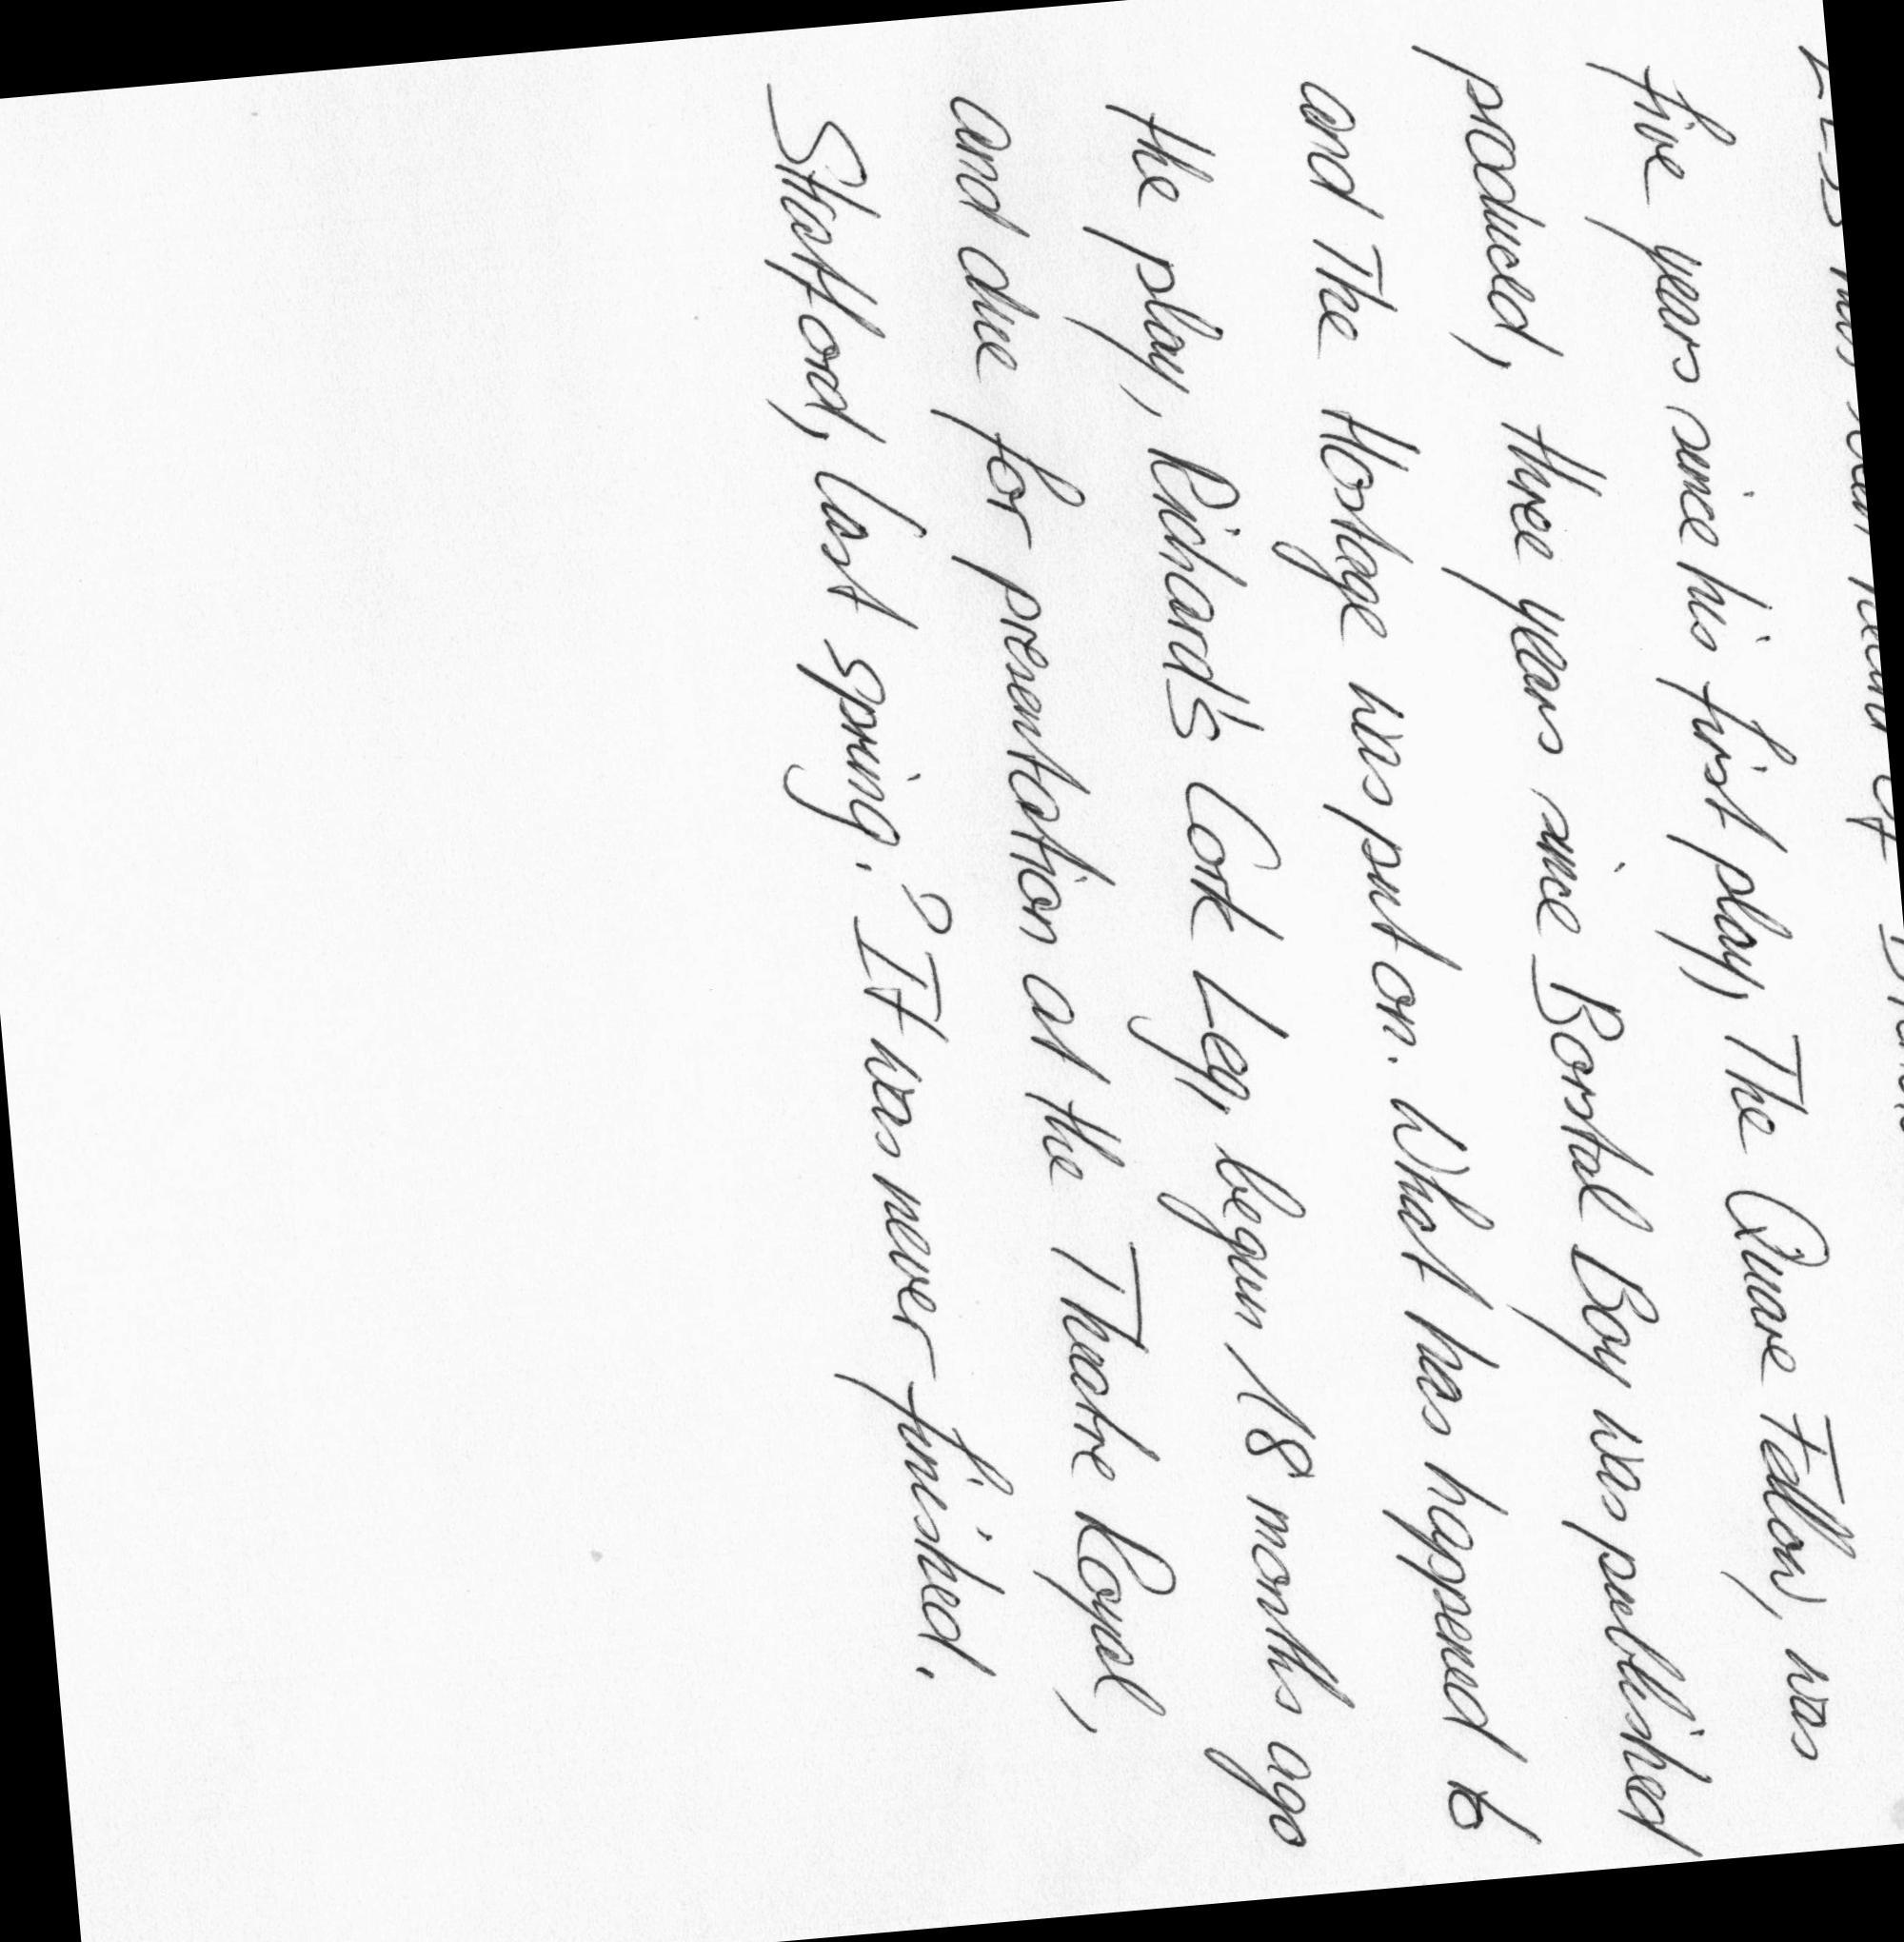 five years since his first play, The Quare Fellow, was
produced, three years since Borstal Boy was published
and The Hostage was put on. What has happened to
the play, Richard's Cork Leg, begun 18 months ago
and due for presentation at the Theatre Royal,
Stratford, last spring.? It was never finished.